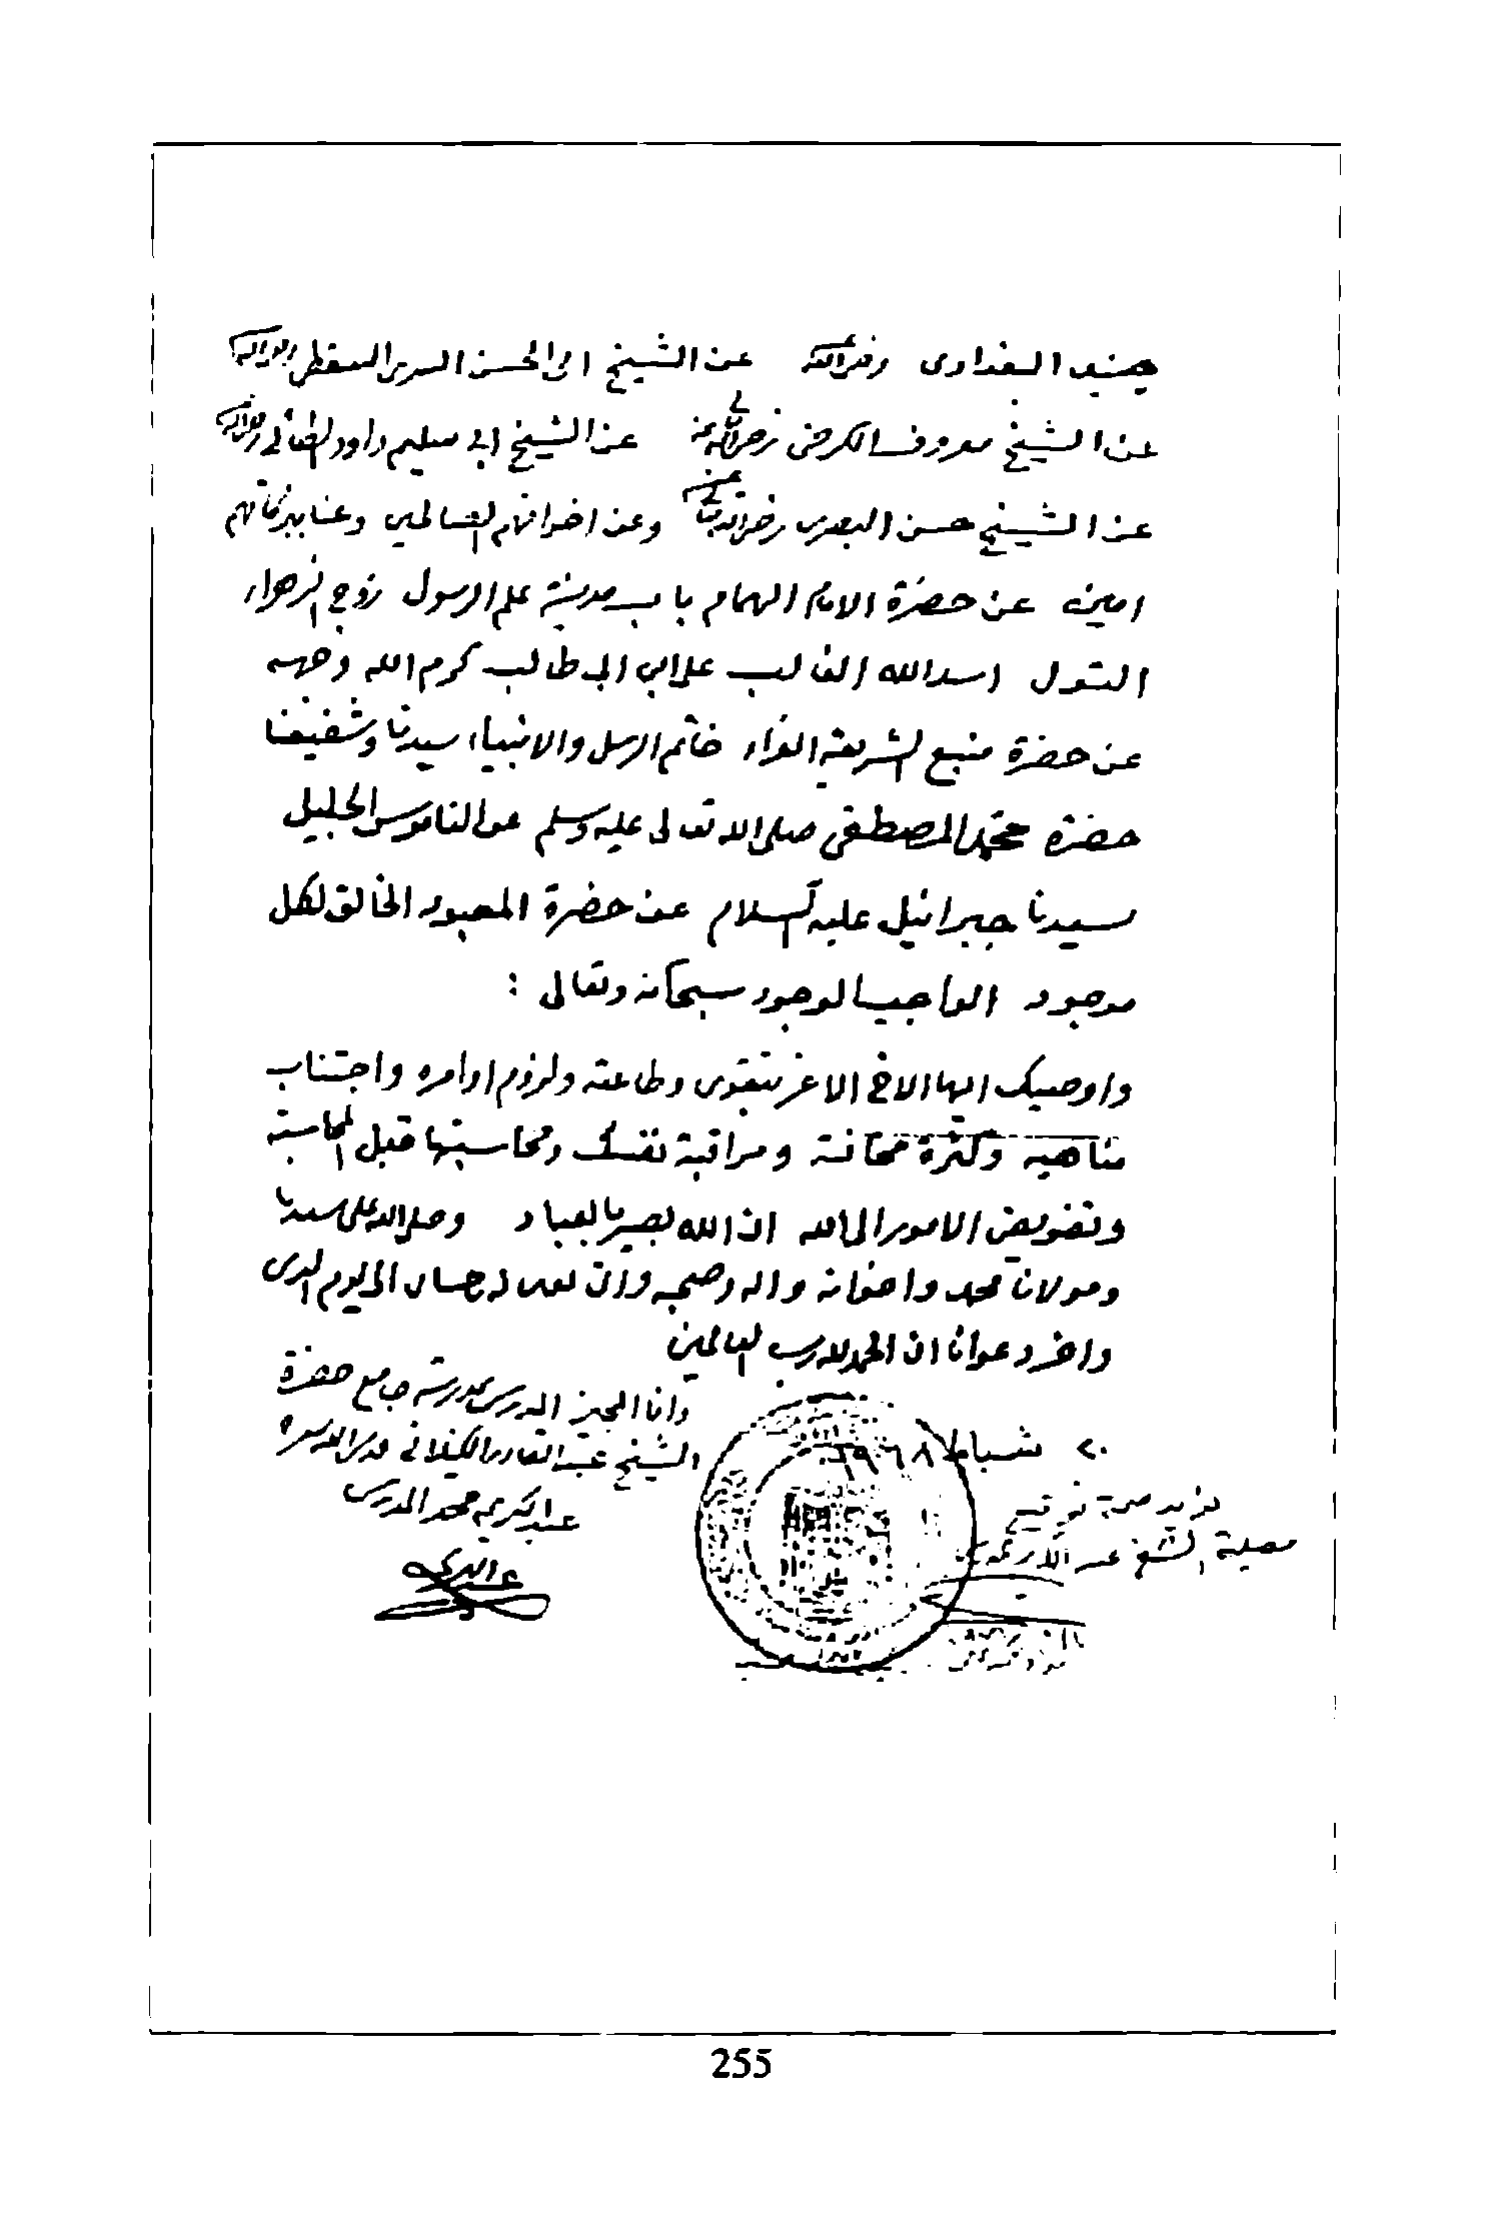 جنيد البغدادى رضى الله عنه عن الشيخ ابى الحسن السرى السقطى رضى الله عنه
عن الشيخ معروف الكرخى رضى الله تعالى عنه عن الشيخ ابى سليم داود الطائى رضى الله عنه
عن الشيخ حسن البصرى رضى الله تعالى عنه وعن اخوانهم الصالحين وعنا ببركاتهم
امين عن حضرة الامام الهمام باب مدينة علم الرسول زوج الزهراء
البتول اسد الله الغالب على ابن ابى طالب كرم الله وجهه
عن حضرة منبع الشريعة الغراء خاتم الرسل والانبياء سيدنا وشفيعنا
حضرة محمد المصطفى صلى الله تعالى عليه وسلم عن الناموس الجليل
سيدنا جبرائيل عليه السلام عن حضرة المعبود الخالق لكل
موجود الواجب الوجود سبحانه وتعالى :
واوصيك ايها الاخ الاعز بتقوى وطاعته ولزوم اوامره واجتناب
مناهيه وكثرة مخافته ومراقبة نفسك ومحاسبتها قبل المحاسبة
وتفويض الامور الى الله ان الله بصير بالعباد وصلى الله على سيدنا
ومولانا محمد واخوانه واله وصحبه والتابعين لهم باحسان الى يوم الدين
واخر دعوانا ان الحمد لله رب العالمين
وانا المجيز المدرس بمدرسة جامع حضرة
الشيخ عبد القادر الكيلانى
٢٠ شباط ١٩٦٨
عبد الكريم محمد المدرس
نؤيد صحة توقيع
فضيلة الشيخ عبد الكريم
255